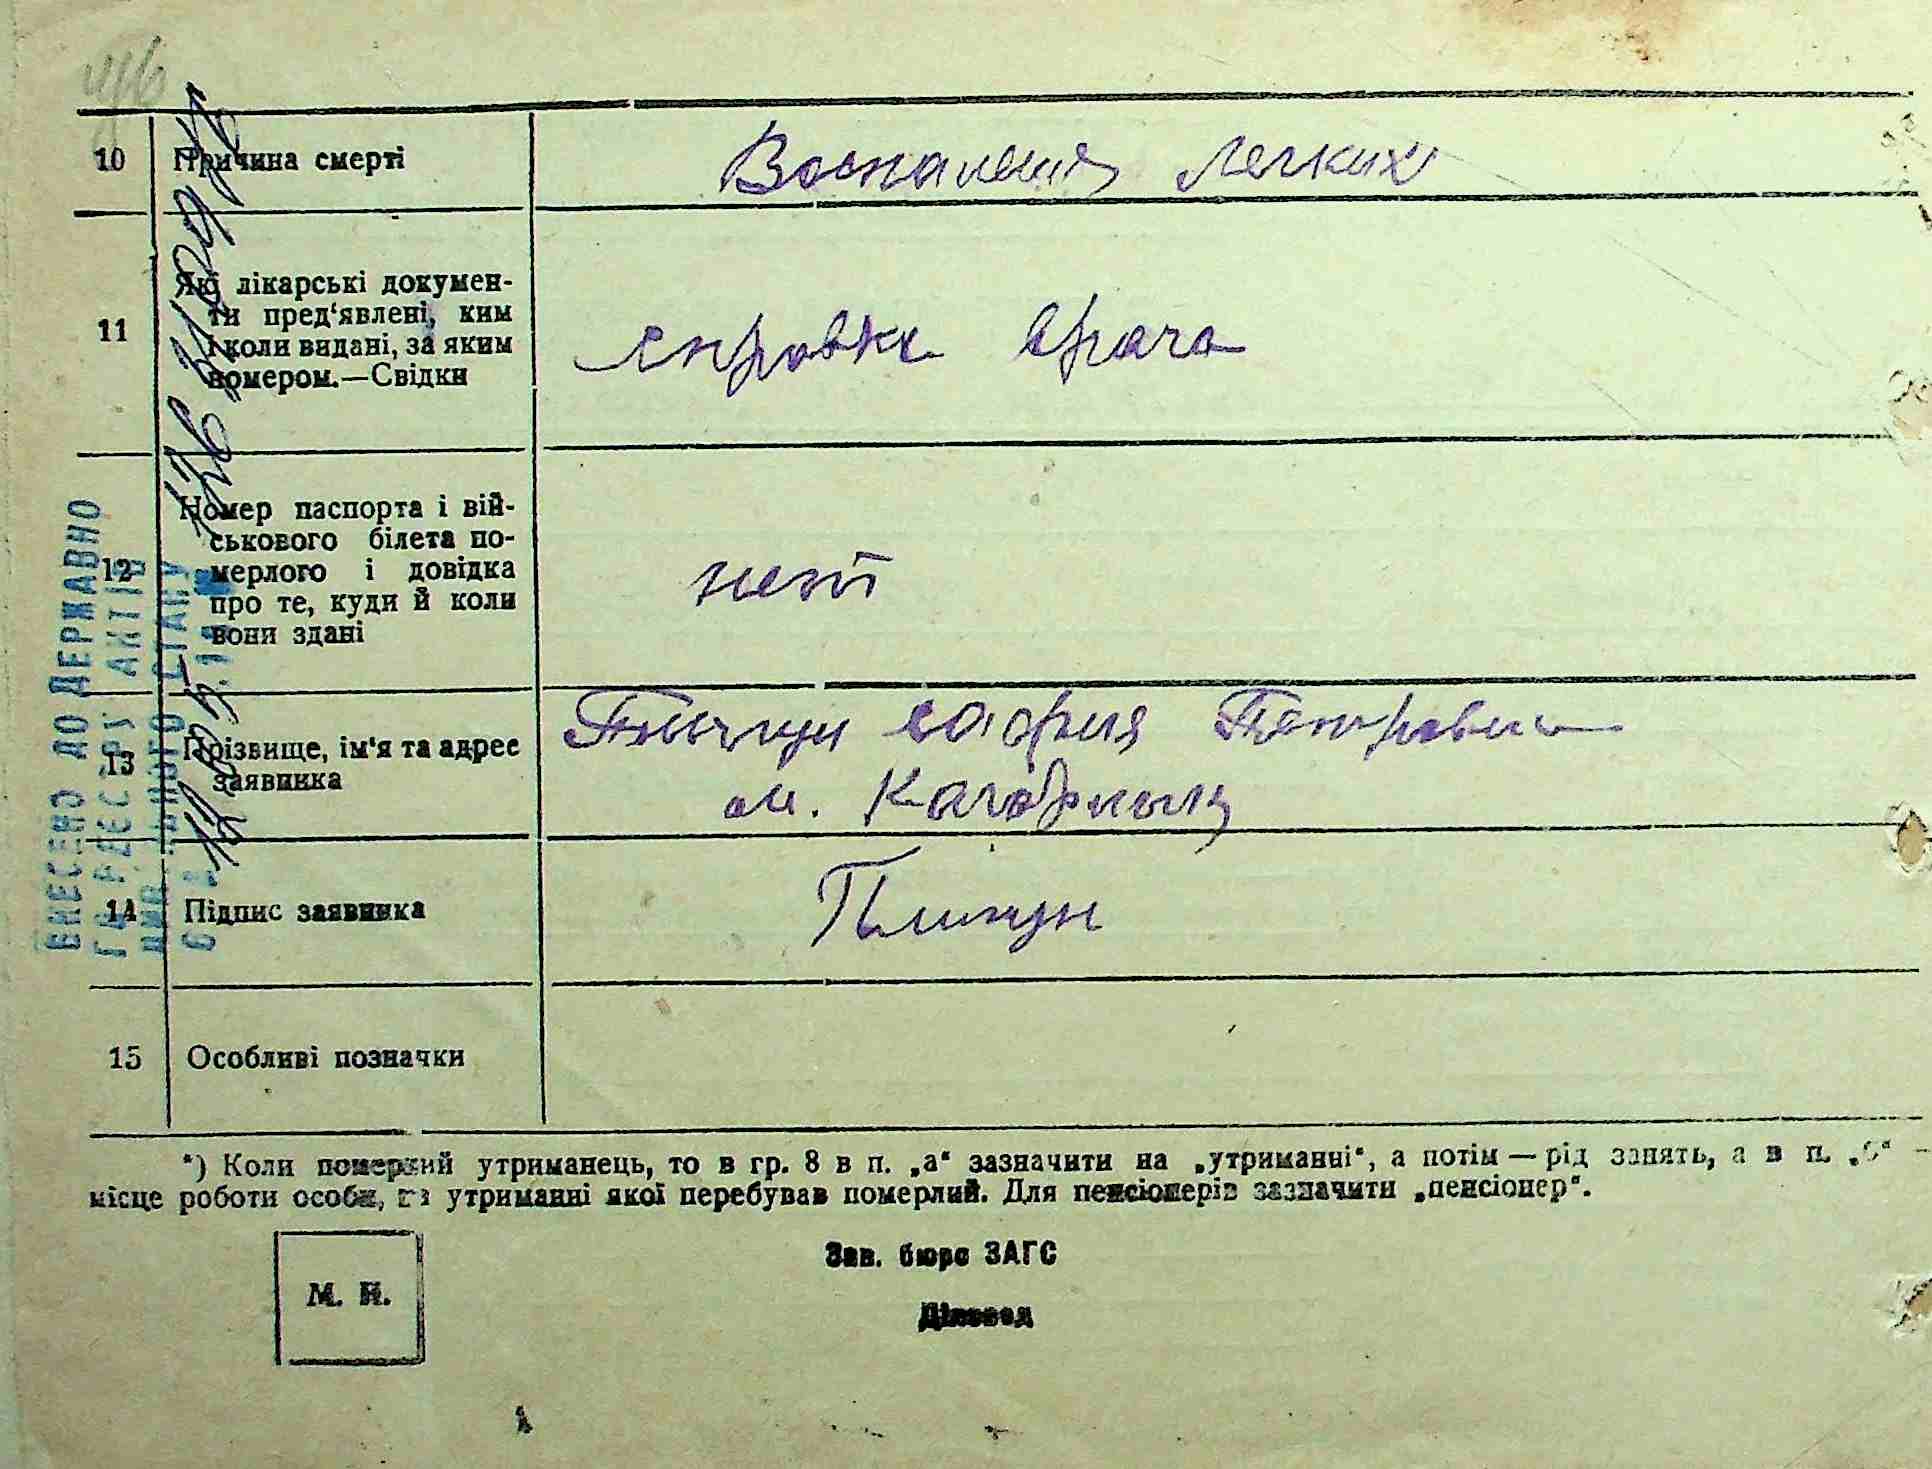 10 Причина смерті
Воспаления Легких
11 Які лікарські докумен-
ти пред‘явлені, ким
і коли видані, за яким
номером.—Свідки
справка врача
12 Номер паспорта і вій-
ськового білета по-
мерлого і довідка
про те, куди й коли
вони здані
нет
13 Прізвище, ім‘я та адрес
заявника
София Петровна
14 Підпис заявника
15 Особливі позначки
*) Коли померлий утриманець, то в гр. 8 в п. „а“ зазначити на „утриманні“, а потім — рід занять, а в п. „б“ —
місце роботи особи, на утриманні якої перебував померлий. Для пенсіонерів зазначити „пенсіонер“.
Зав. бюро ЗАГС
М. П.
Діловод
ВНЕСЕНО ДО ДЕРЖАВНО
ГО РЕЄСТРУ АКТІВ
СТАНУ